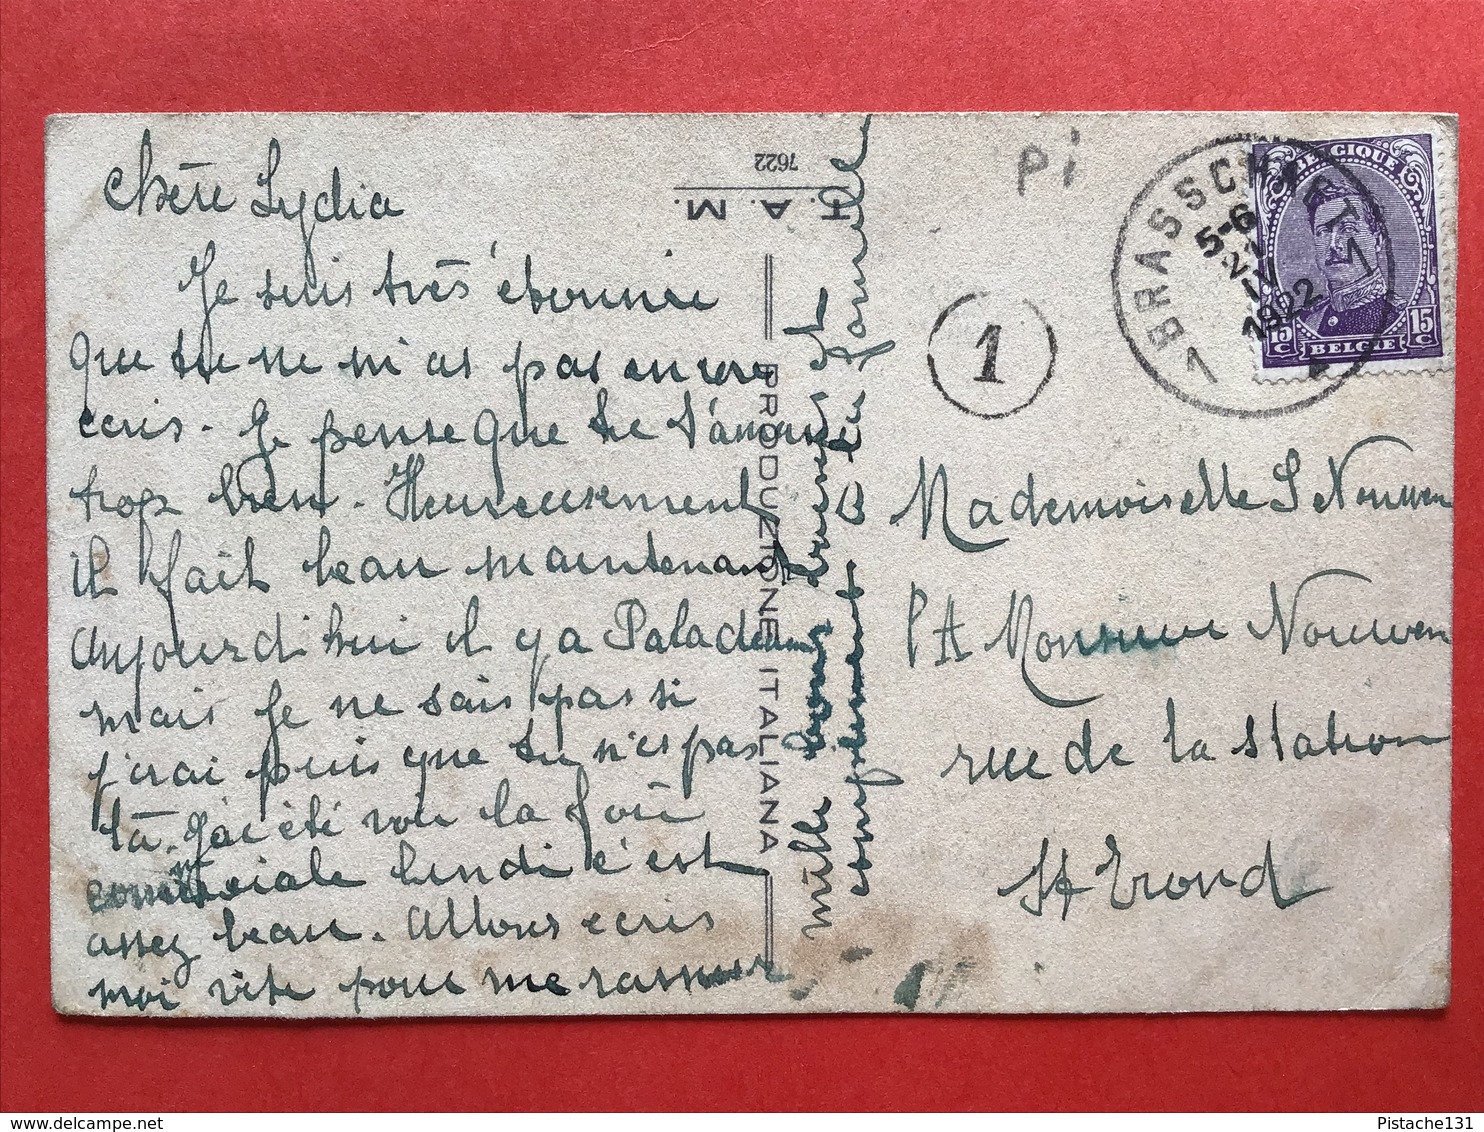 chère Lydia
Je suis très étonnée
que tu ne m'as pas encore
écris. Je pense que tu t'amuse
trop bien. Heureusement
il fait beau maintenant
aujourd'hui il y a Paladeum
mais je ne sais pas si
j'irai puis que tu n'es pas
là. J'ai été voir la foire
commerciale lundi c'est
assez beau. Allons écris
moi vite pour me rassurer
mille bons baisers et
compliments à la famille
7622
H.A.M.
PRODUZIONE ITALIANA
Pi
1
BRASSCHAET 1
5-6
21
IV
1922
1
BELGIQUE
15 C
15 C
BELGIE
Mademoiselle L Nouwen
P/A Monsieur Nouwen
rue de la station
St Trond
Pistache131